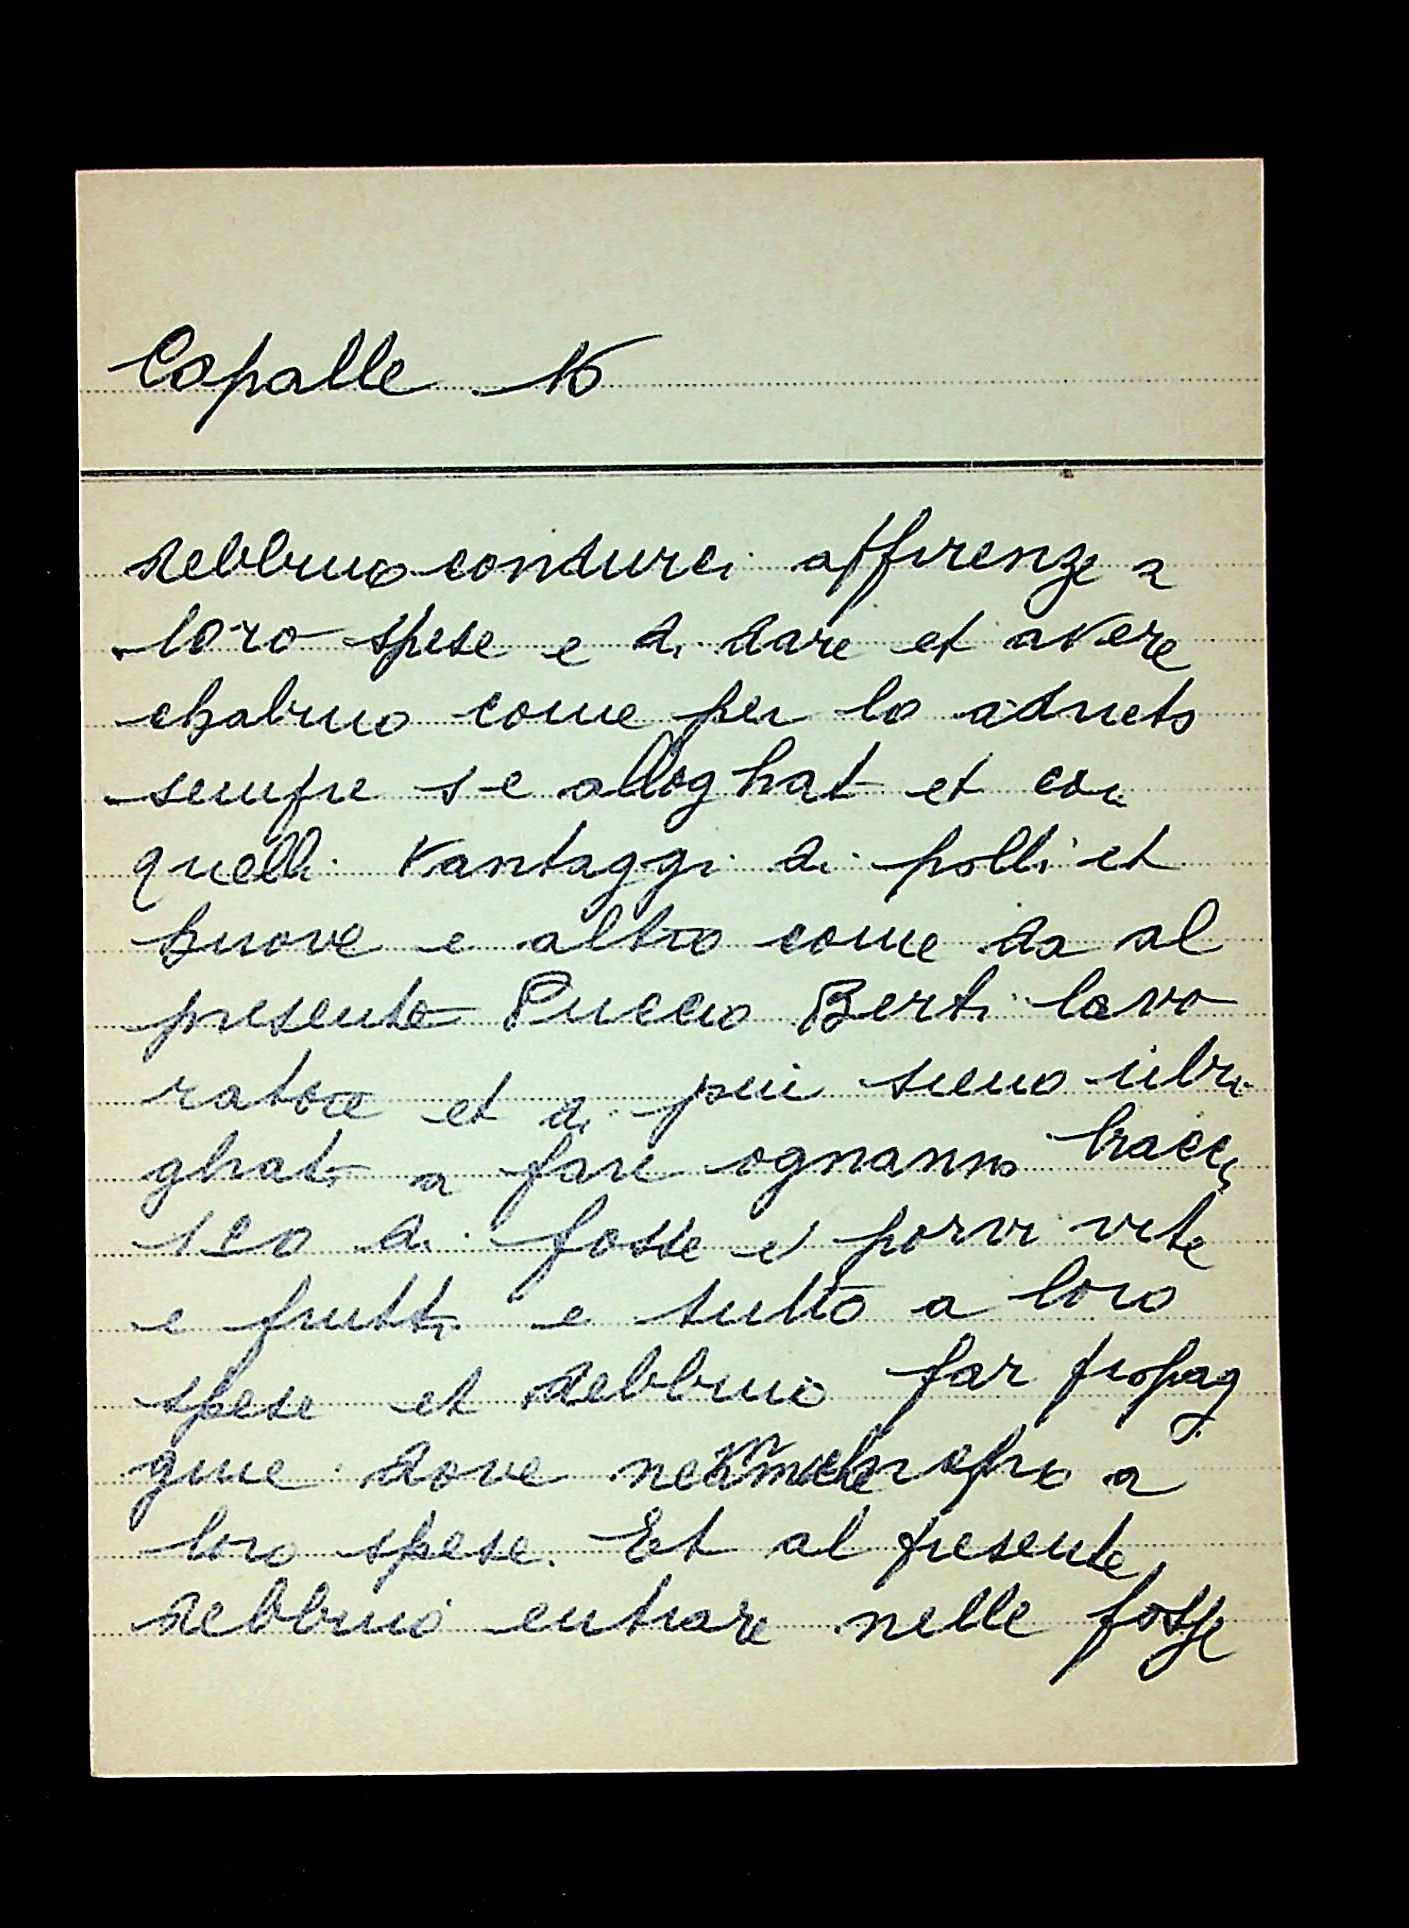 Capalle 16
debbino condurci affirenze a
loro spese e di dare et avere
chabino come per lo adrieto
sempre s e alloghat et con
quelli vantaggi di polli et
huove e altro come da al
presente Puccio Berti lavo
ratore et di piu sieno ubri
ghati a fare ognanno bracci
100 di fosse e porvi vite
e frutti e tutto a loro
spese et debbino far propag
gine dove a
loro spese. Et al presente
debbino entrare nelle fosse